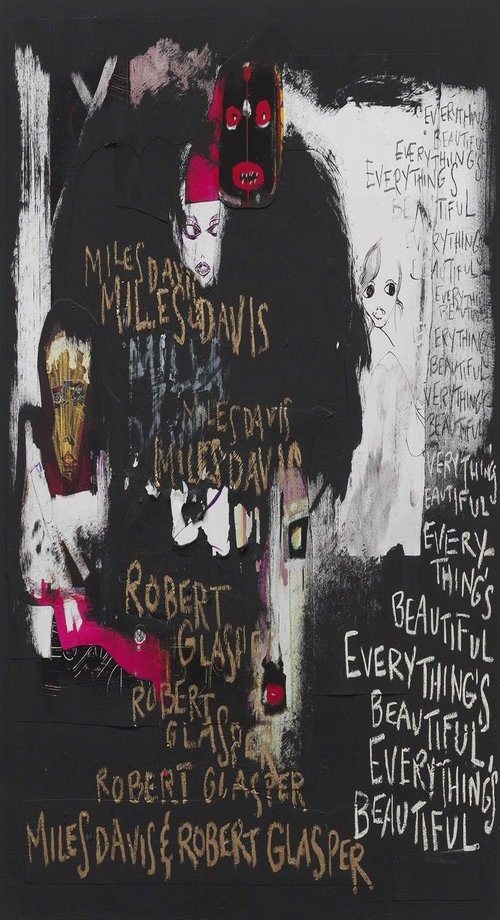 MILES DAVIS
MILES DAVIS
MILES DAVIS
MILES DAVIS
ROBERT
GLASPER
ROBERT
GLASPER
ROBERT GLASPER
MILES DAVIS & ROBERT GLASPER
EVERYTHING
BEAUTIFUL
EVERYTHING'S
EVERYTHING'S
BEAUTIFUL
EVERYTHING
BEAUTIFUL
EVERYTHING
BEAUTIFUL
EVERYTHING
BEAUTIFUL
EVERYTHING
BEAUTIFUL
EVERYTHING
BEAUTIFUL
EVERY-
THING'S
BEAUTIFUL
EVERYTHING'S
BEAUTIFUL,
EVERYTHING'S
BEAUTIFUL